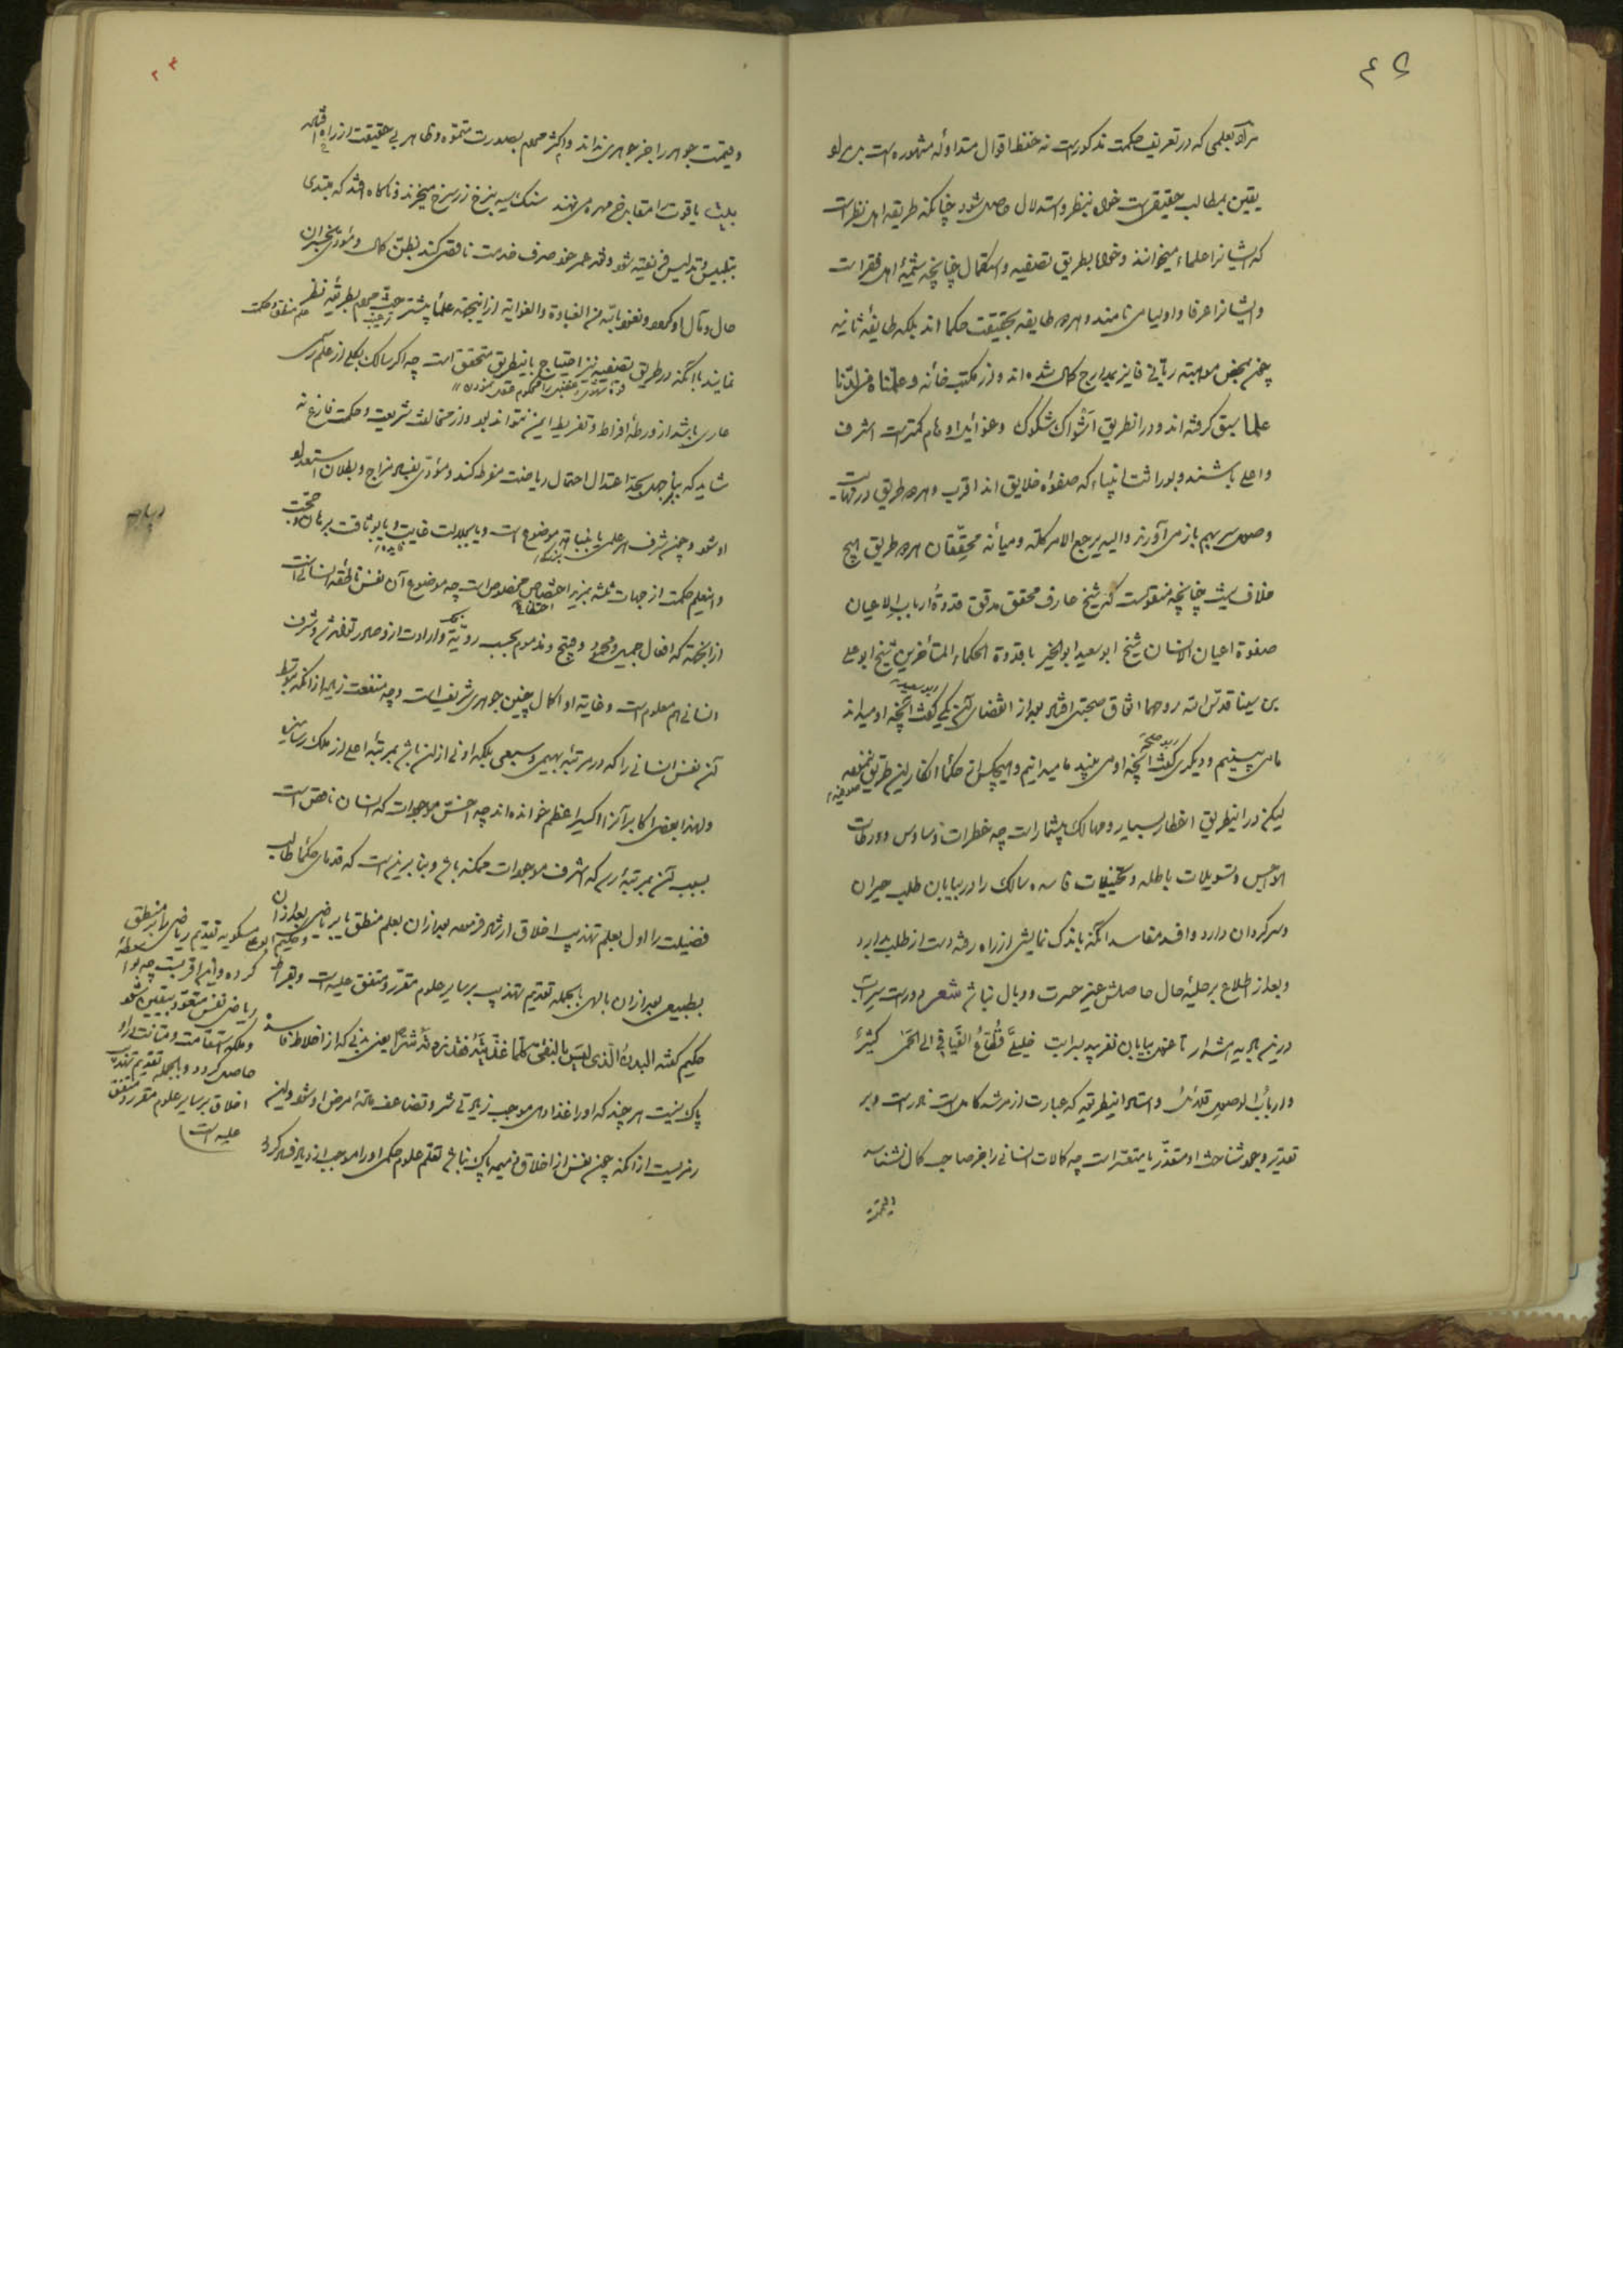 ۴۵
مراد بعلمی که در تعریف حکمت مذکورست نه حفظ اقوال متداوله مشهوره است بل مراد
یقین بمطالب حقیقی است خواه بنظر و استدلال حاصل شود چنانکه طریقه اهل نظر است
که ایشانرا علماء میخوانند و خواه بطریق تصفیه و استکمال چنانچه شیمهٔ اهل فقر است
و ایشانرا عرفا و اولیا می نامند و هر دو طایفه بحقیقت حکما اند بلکه طایفهٔ ثانیه
چون بمحض موهبت ربانی فایز بمدارج کمال شده اند و از مکتب خانه و علمناه من لدنا
علما سبق گرفته اند و در انطریق اشواک شکوک و غوائل اوهام کمترست اشرف
و اعلی باشند و بوراثت انبیاء که صفوه خلایق اند اقرب و هر دو طریق در نهایت
وصول سر بهم باز می آورند و الیه یرجع الامر کله و میانه محققان هر دو طریق هیچ
خلاف نیست چنانچه منقولست که شیخ عارف محقق مدقق قدوة ارباب الاعیان
صفوة اعیان الانسان شیخ ابو سعید ابو الخیر با قدوة الحکماء المتأخرین شیخ ابو علی
بن سینا قدس الله روحهما اتفاق صحبتی افتاد بعد از انقضای آن یکی گفت آنچه او میداند
ما می بینیم و دیگری گفت آنچه او می بیند ما میدانیم و هیچکس از حکما انکار این طریق ننموده
لیکن در اینطریق اخطار بسیار و مهالک بیشمار است چه خطرات وساوس و ورطات
هواجس و تسویلات باطله و تخیلات فاسده سالک را در بیابان طلب حیران
و سرگردان دارد و افسد مفاسد آنکه باندک نمایشی از راه رفته دست از طلب بدارد
و بعد از اطلاع بر جلیهٔ حال حاصلش غیر حسرت و وبال نباشد شعر دورست سر آب
درین بادیه هشدار تا غول بیابان نفریبد بسراب خلیلی قطاع الفیافی الی الحمی کثیر
و ارباب الوصول قلائل و استاد اینطریقه که عبارت از مرشد کامل است نادرست و بر
تقدیر وجود شناخت او متعذر یا متعسر است چه کمالات انسانی را جز صاحب کمال نشناسد
و قیمت جوهر را جز جوهری نداند و اکثر مردم بصورت مموه و ظاهر بی حقیقت از راه افتاده
یاقوت را مقابل خر مهره می نهند سنگ سیه بنرخ زر سرخ میخرند و ناگاه افتد که مبتدی
بتلبیس و تدلیس فریفته شود و نقد عمر خود صرف خدمت ناقصی کند بظن کمال و مؤدی بخسران
حال و مآل او گردد و نعوذ بالله من الغباوة والغوایة ازاینجهت علما بیشتر ترغیب مردم بطریقه نظر
نمایند با آنکه در طریق تصفیه نیز احتیاج باینطریق متحقق است چه اگر سالک بکلی از علم رسمی
عاری باشد از ورطهٔ افراط و تفریط ایمن نتواند بود و از مخالفت شریعت و حکمت فارغ نه
شاید که بنا بر جهل بحد اعتدال احتمال ریاضت مفرطه کند و مؤدی بفساد مزاج و بطلان استعداد
او شود و چون شرف هر علمی یا بنباهت موضوع است و یا بجلالت غایت و یا بوثاقت برهان و حجت
و اینعلم حکمت از جهات ثلثه بمزید اختصاص مخصوص است چه موضوع آن نفس ناطقه انسانی است
از آنجهت که افعال جمیل و محمود و قبیح و مذموم بحسب رویت و ارادت ازو صادر تواند شد و شرف
انسانی هم معلوم است و غایه او اکمال چنین جوهری شریف است و چه منفعت زیاده از آنکه بتوسط
آن نفس انسانی را که در مرتبهٔ بهیمی و سبعی بلکه ادنی از ان باشد بمرتبهٔ اعلی از ملک رساند
و لهذا بعضی اکابر آنرا اکسیر اعظم خوانده اند چه اخس موجودات که انسان ناقص است
بسبب آن بمرتبهٔ رسد که اشرف موجودات ممکنه باشد و بنا برین است که قدمای حکما طالب
فضیلت را اول بعلم تهذیب اخلاق ارشاد فرموده بعد ازان بعلم منطق پس بریاضی بعد ازان
بطبیعی بعد ازان بالهی بالجمله تقدیم تهذیب بر سایر علوم مقرر و متفق علیه است و بقراط
حکیم گفته البدن الذی لیس بالنقی کلما غذیته فقد زدته شرا یعنی بدنی که از اخلاط فاسده
پاک نیست هر چند که او را غذا دهی موجب زیادتی شر و تضاعف مادهٔ امراض او شود و این
رمزیست از آنکه چون نفس از اخلاق ذمیمه پاک نباشد تعلم علوم حکمی او را موجب ازدیاد فساد گردد
و حکیم ابو علی مسکویه تقدیم ریاضی را بر منطق
کرده و این اقربست چه بواسطهٔ
ریاضی نفس متعود بیقین شود
و ملکه استقامت و متانت رای او
حاصل گردد و بالجمله تقدیم تهذیب
اخلاق بر سایر علوم مقرر و متفق
علیه است